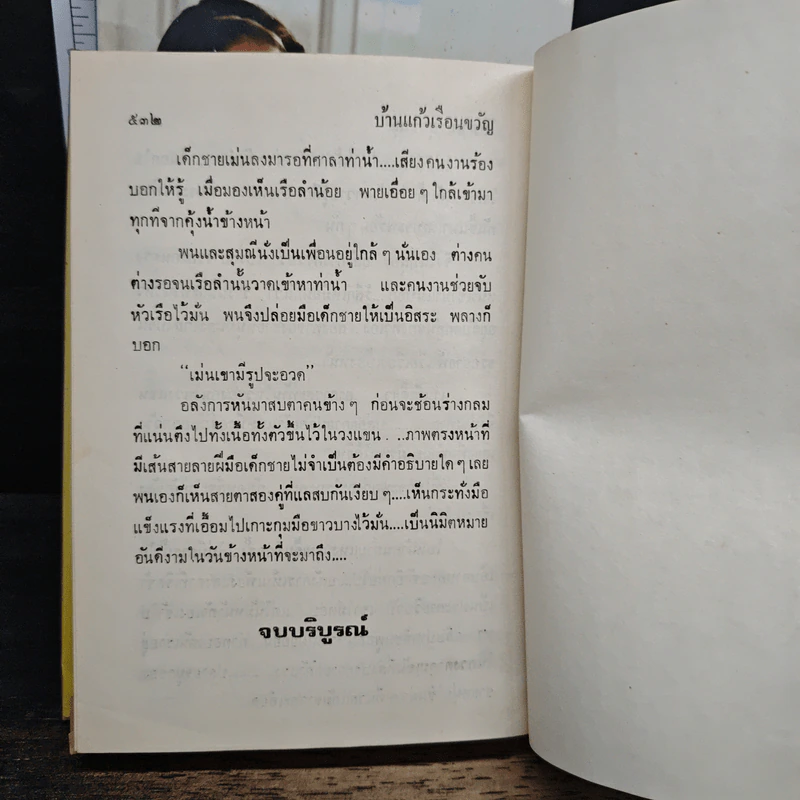 ๕๓๒ บ้านแก้วเรือนขวัญ
เด็กชายเม่นลงมารอที่ศาลาท่าน้ำ....เสียงคนงานร้อง
บอกให้รู้ เมื่อมองเห็นเรือลำน้อย พายเอื่อย ๆ ใกล้เข้ามา
ทุกทีจากคุ้งน้ำข้างหน้า
พนและสุมณีนั่งเป็นเพื่อนอยู่ใกล้ ๆ นั่นเอง ต่างคน
ต่างรอจนเรือลำนั้นวาดเข้าหาท่าน้ำ และคนงานช่วยจับ
หัวเรือไว้มั่น พนจึงปล่อยมือเด็กชายให้เป็นอิสระ พลางก็
บอก
“เม่นเขามีรูปจะอวด”
อลังการหันมาสบตาคนข้าง ๆ ก่อนจะช้อนร่างกลม
ที่แน่นตึงไปทั้งเนื้อทั้งตัวขึ้นไว้ในวงแขน . ..ภาพตรงหน้าที่
มีเส้นสายลายฝีมือเด็กชายไม่จำเป็นต้องมีคำอธิบายใด ๆ เลย
พนเองก็เห็นสายตาสองคู่ที่แลสบกันเงียบ ๆ....เห็นกระทั่งมือ
แข็งแรงที่เอื้อมไปเกาะกุมมือขาวบางไว้มั่น....เป็นนิมิตหมาย
อันดีงามในวันข้างหน้าที่จะมาถึง....
จบบริบูรณ์